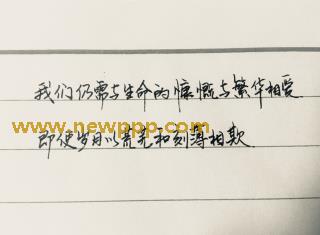 我们仍需与生命的慷慨与繁华相爱
www.newppp.com
即使岁月以荒芜和刻薄相欺